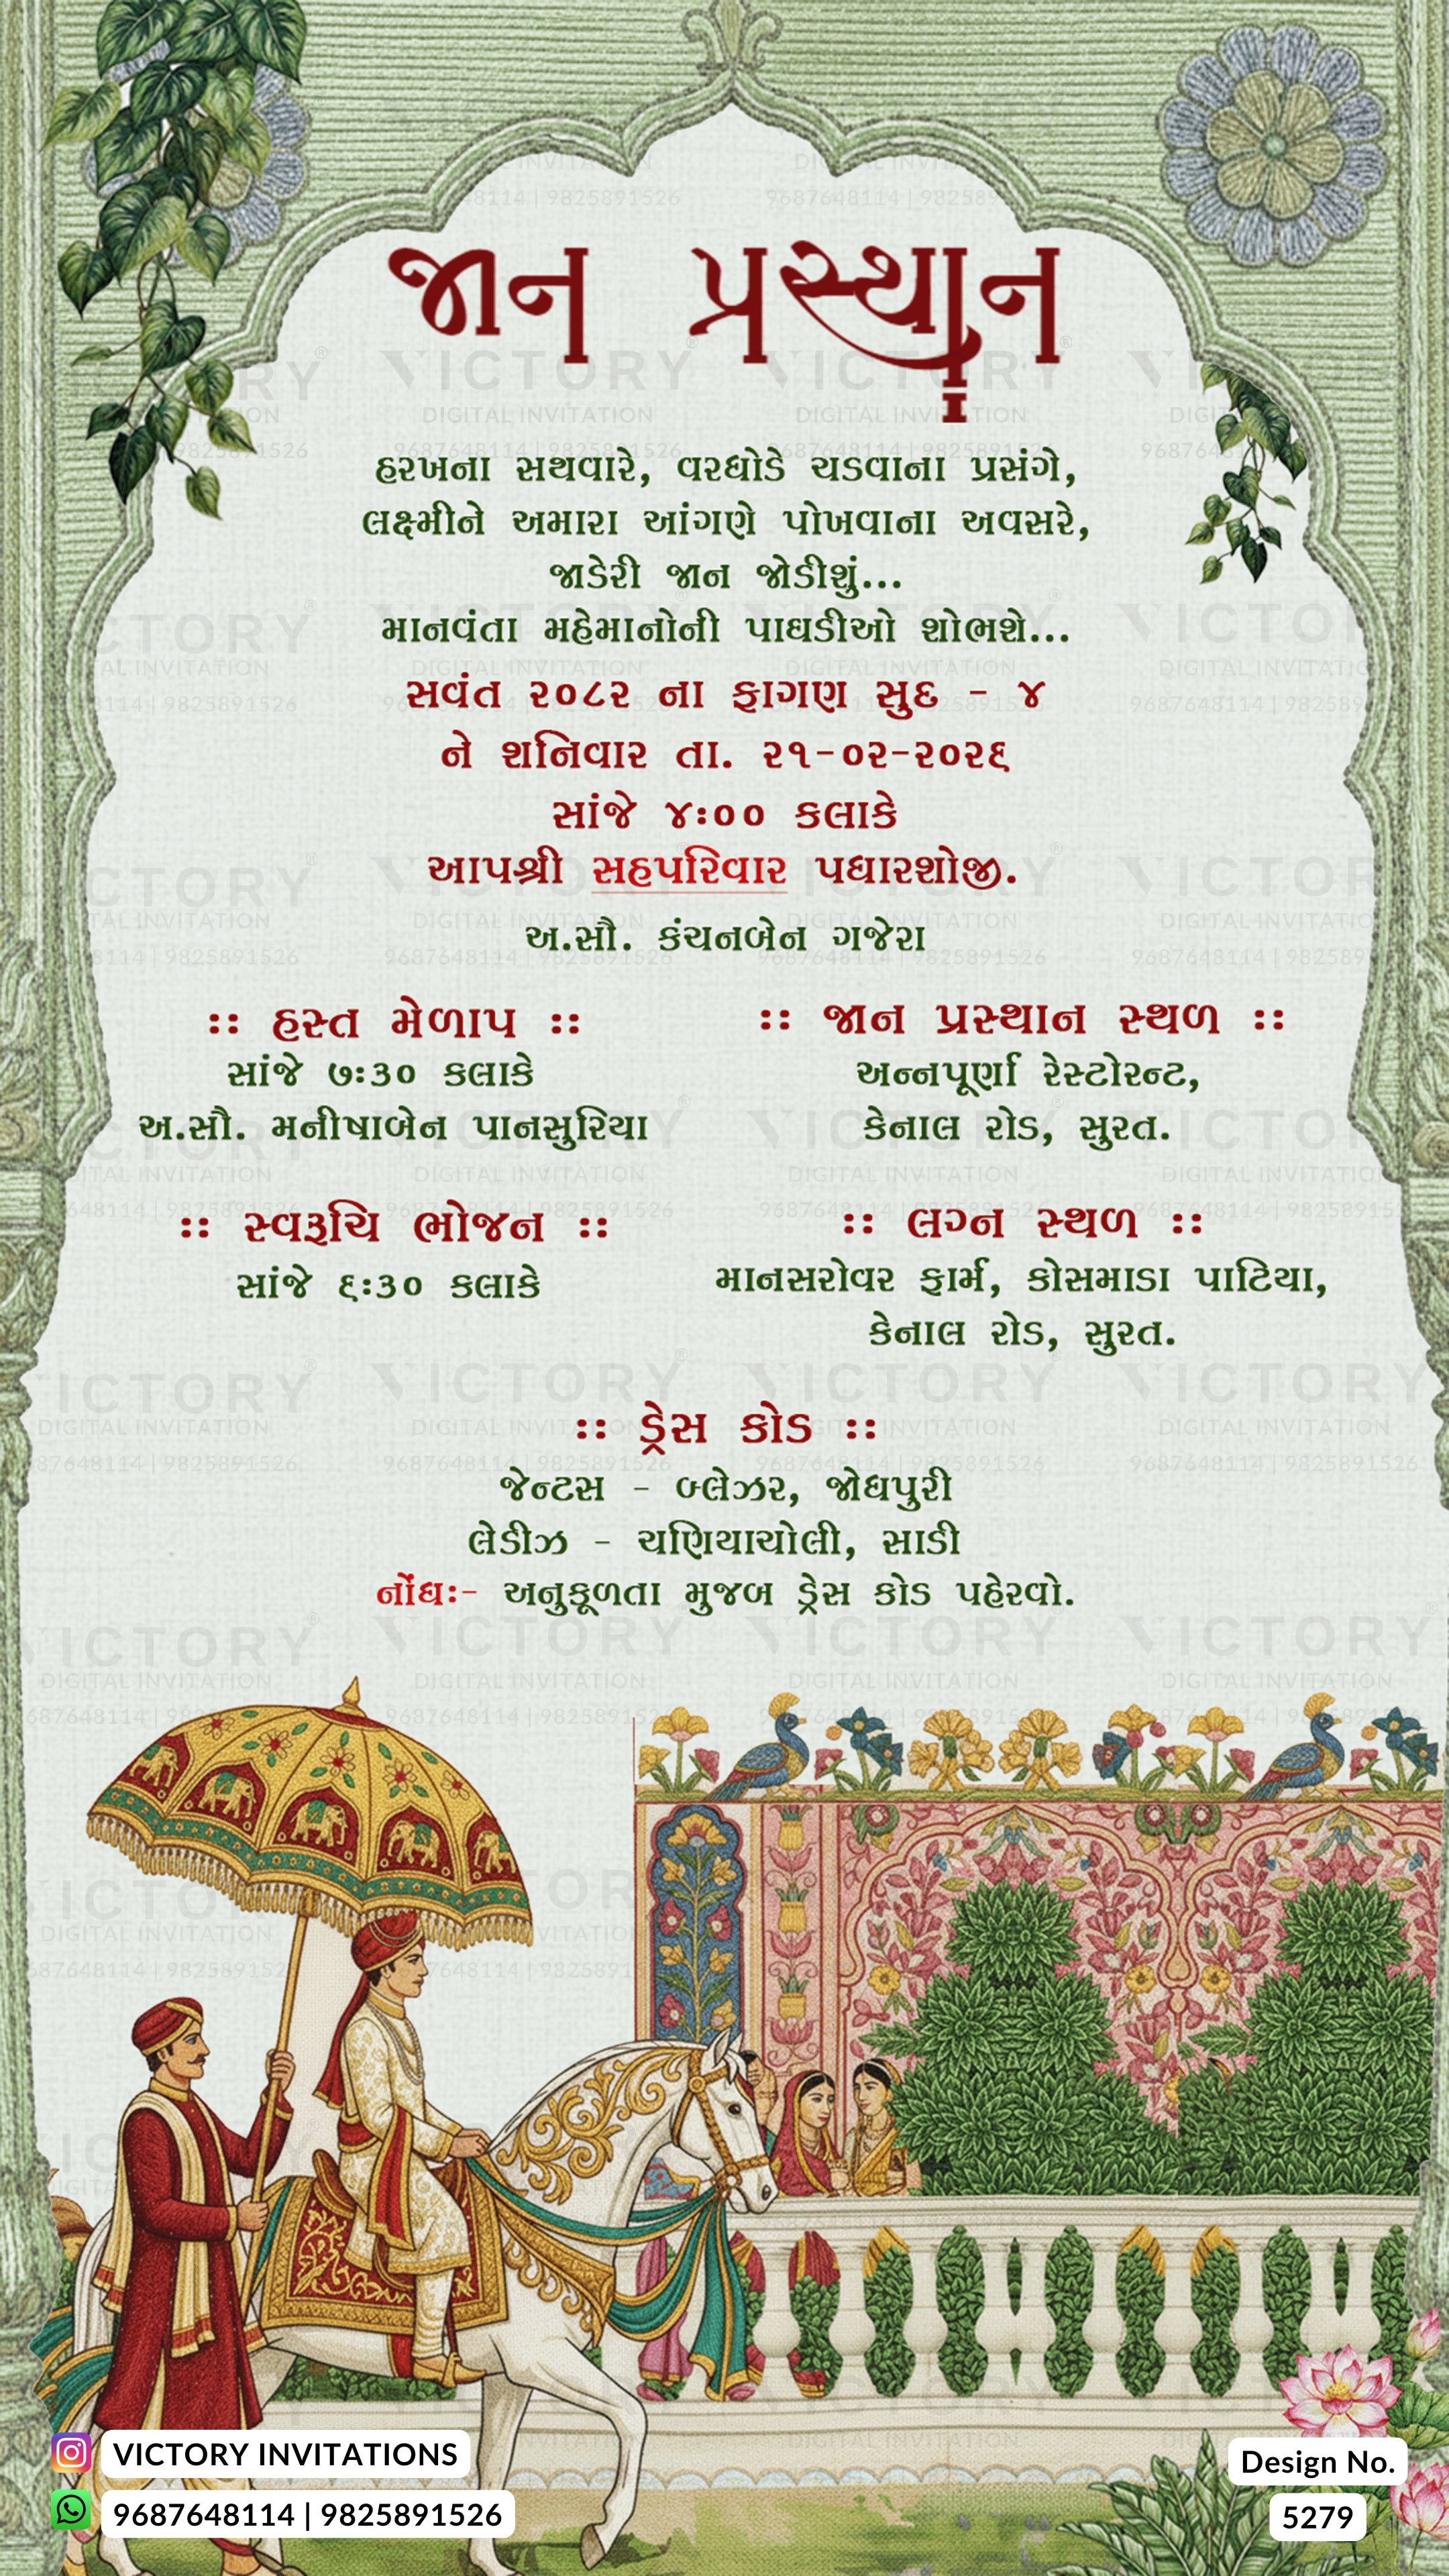 જાન પ્રસ્થાન
હરખના સથવારે, વરઘોડે ચડવાના પ્રસંગે,
લક્ષ્મીને અમારા આંગણે પોખવાના અવસરે,
જાડેરી જાન જોડીશું...
માનવંતા મહેમાનોની પાઘડીઓ શોભશે...
સવંત ૨૦૮૨ ના ફાગણ સુદ - ૪
ને શનિવાર તા. ૨૧-૦૨-૨૦૨૬
સાંજે ૪:૦૦ કલાકે
આપશ્રી સહપરિવાર પધારશોજી.
અ.સૌ. કંચનબેન ગજેરા
:: હસ્ત મેળાપ ::
સાંજે ૭:૩૦ કલાકે
અ.સૌ. મનીષાબેન પાનસુરિયા
:: જાન પ્રસ્થાન સ્થળ ::
અન્નપૂર્ણા રેસ્ટોરન્ટ,
કેનાલ રોડ, સુરત.
:: સ્વરૂચિ ભોજન ::
સાંજે ૬:૩૦ કલાકે
:: લગ્ન સ્થળ ::
માનસરોવર ફાર્મ, કોસમાડા પાટિયા,
કેનાલ રોડ, સુરત.
:: ડ્રેસ કોડ ::
જેન્ટસ - બ્લેઝર, જોધપુરી
લેડીઝ - ચણિયાચોલી, સાડી
નોંધ:- અનુકૂળતા મુજબ ડ્રેસ કોડ પહેરવો.
VICTORY INVITATIONS
9687648114 | 9825891526
Design No.
5279
VICTORY
DIGITAL INVITATION
9687648114 | 9825891526